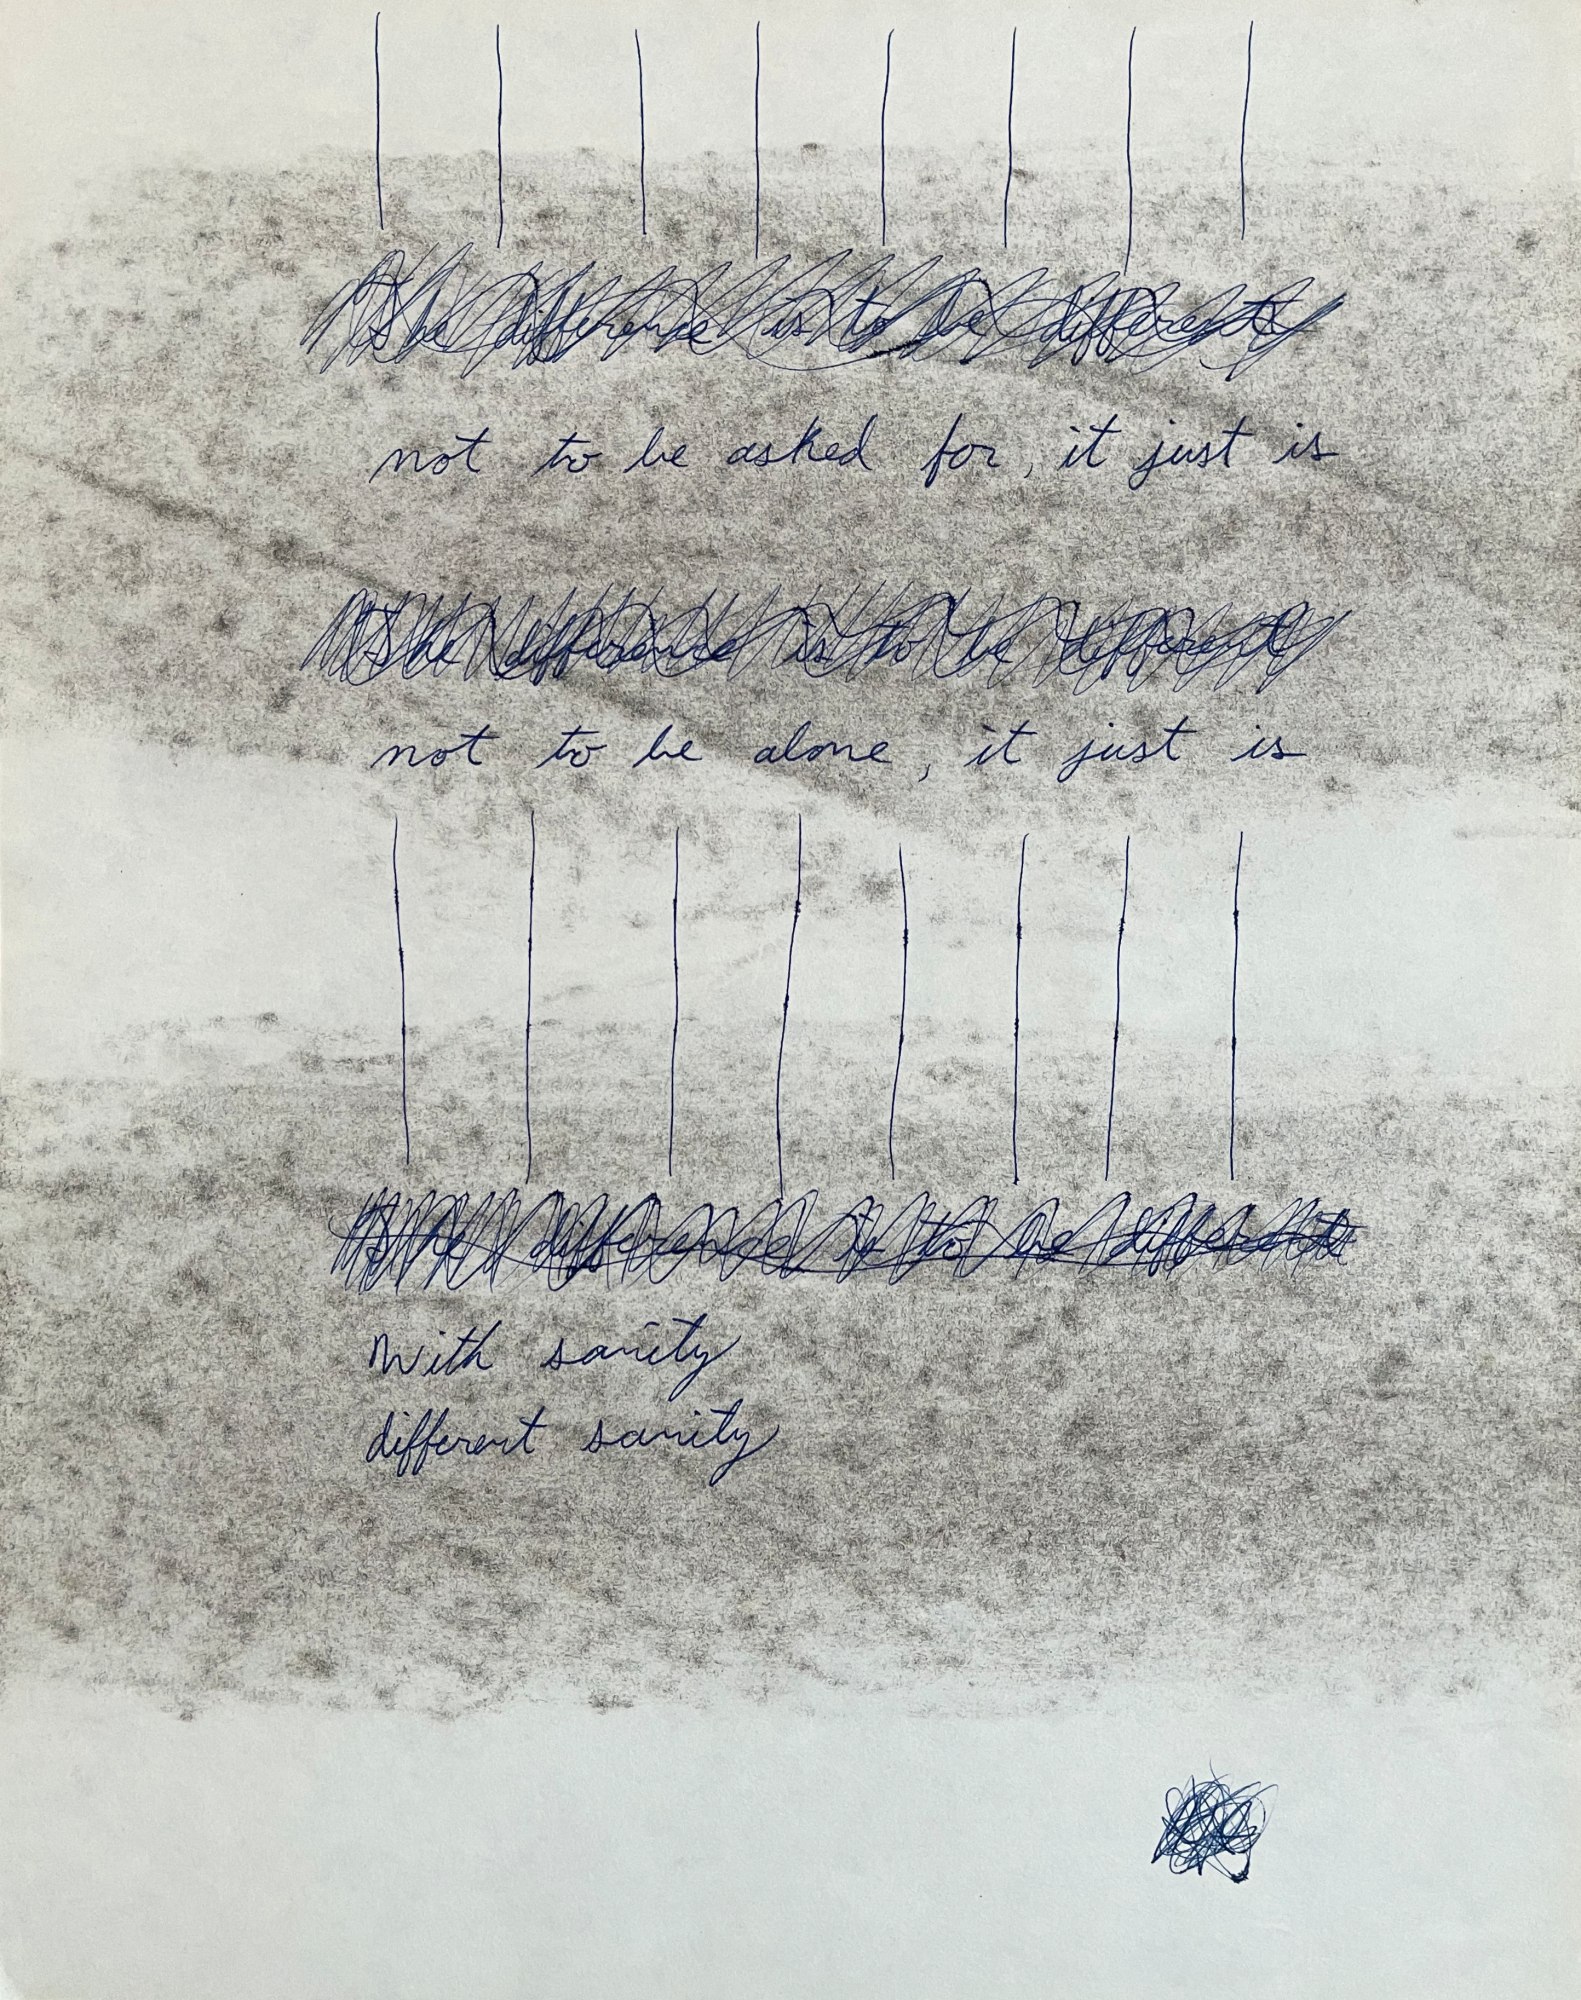 the difference is to be different
not to be asked for, it just is
the difference is to be different
not to be alone, it just is
the difference is to be different
With sanity
different sanity